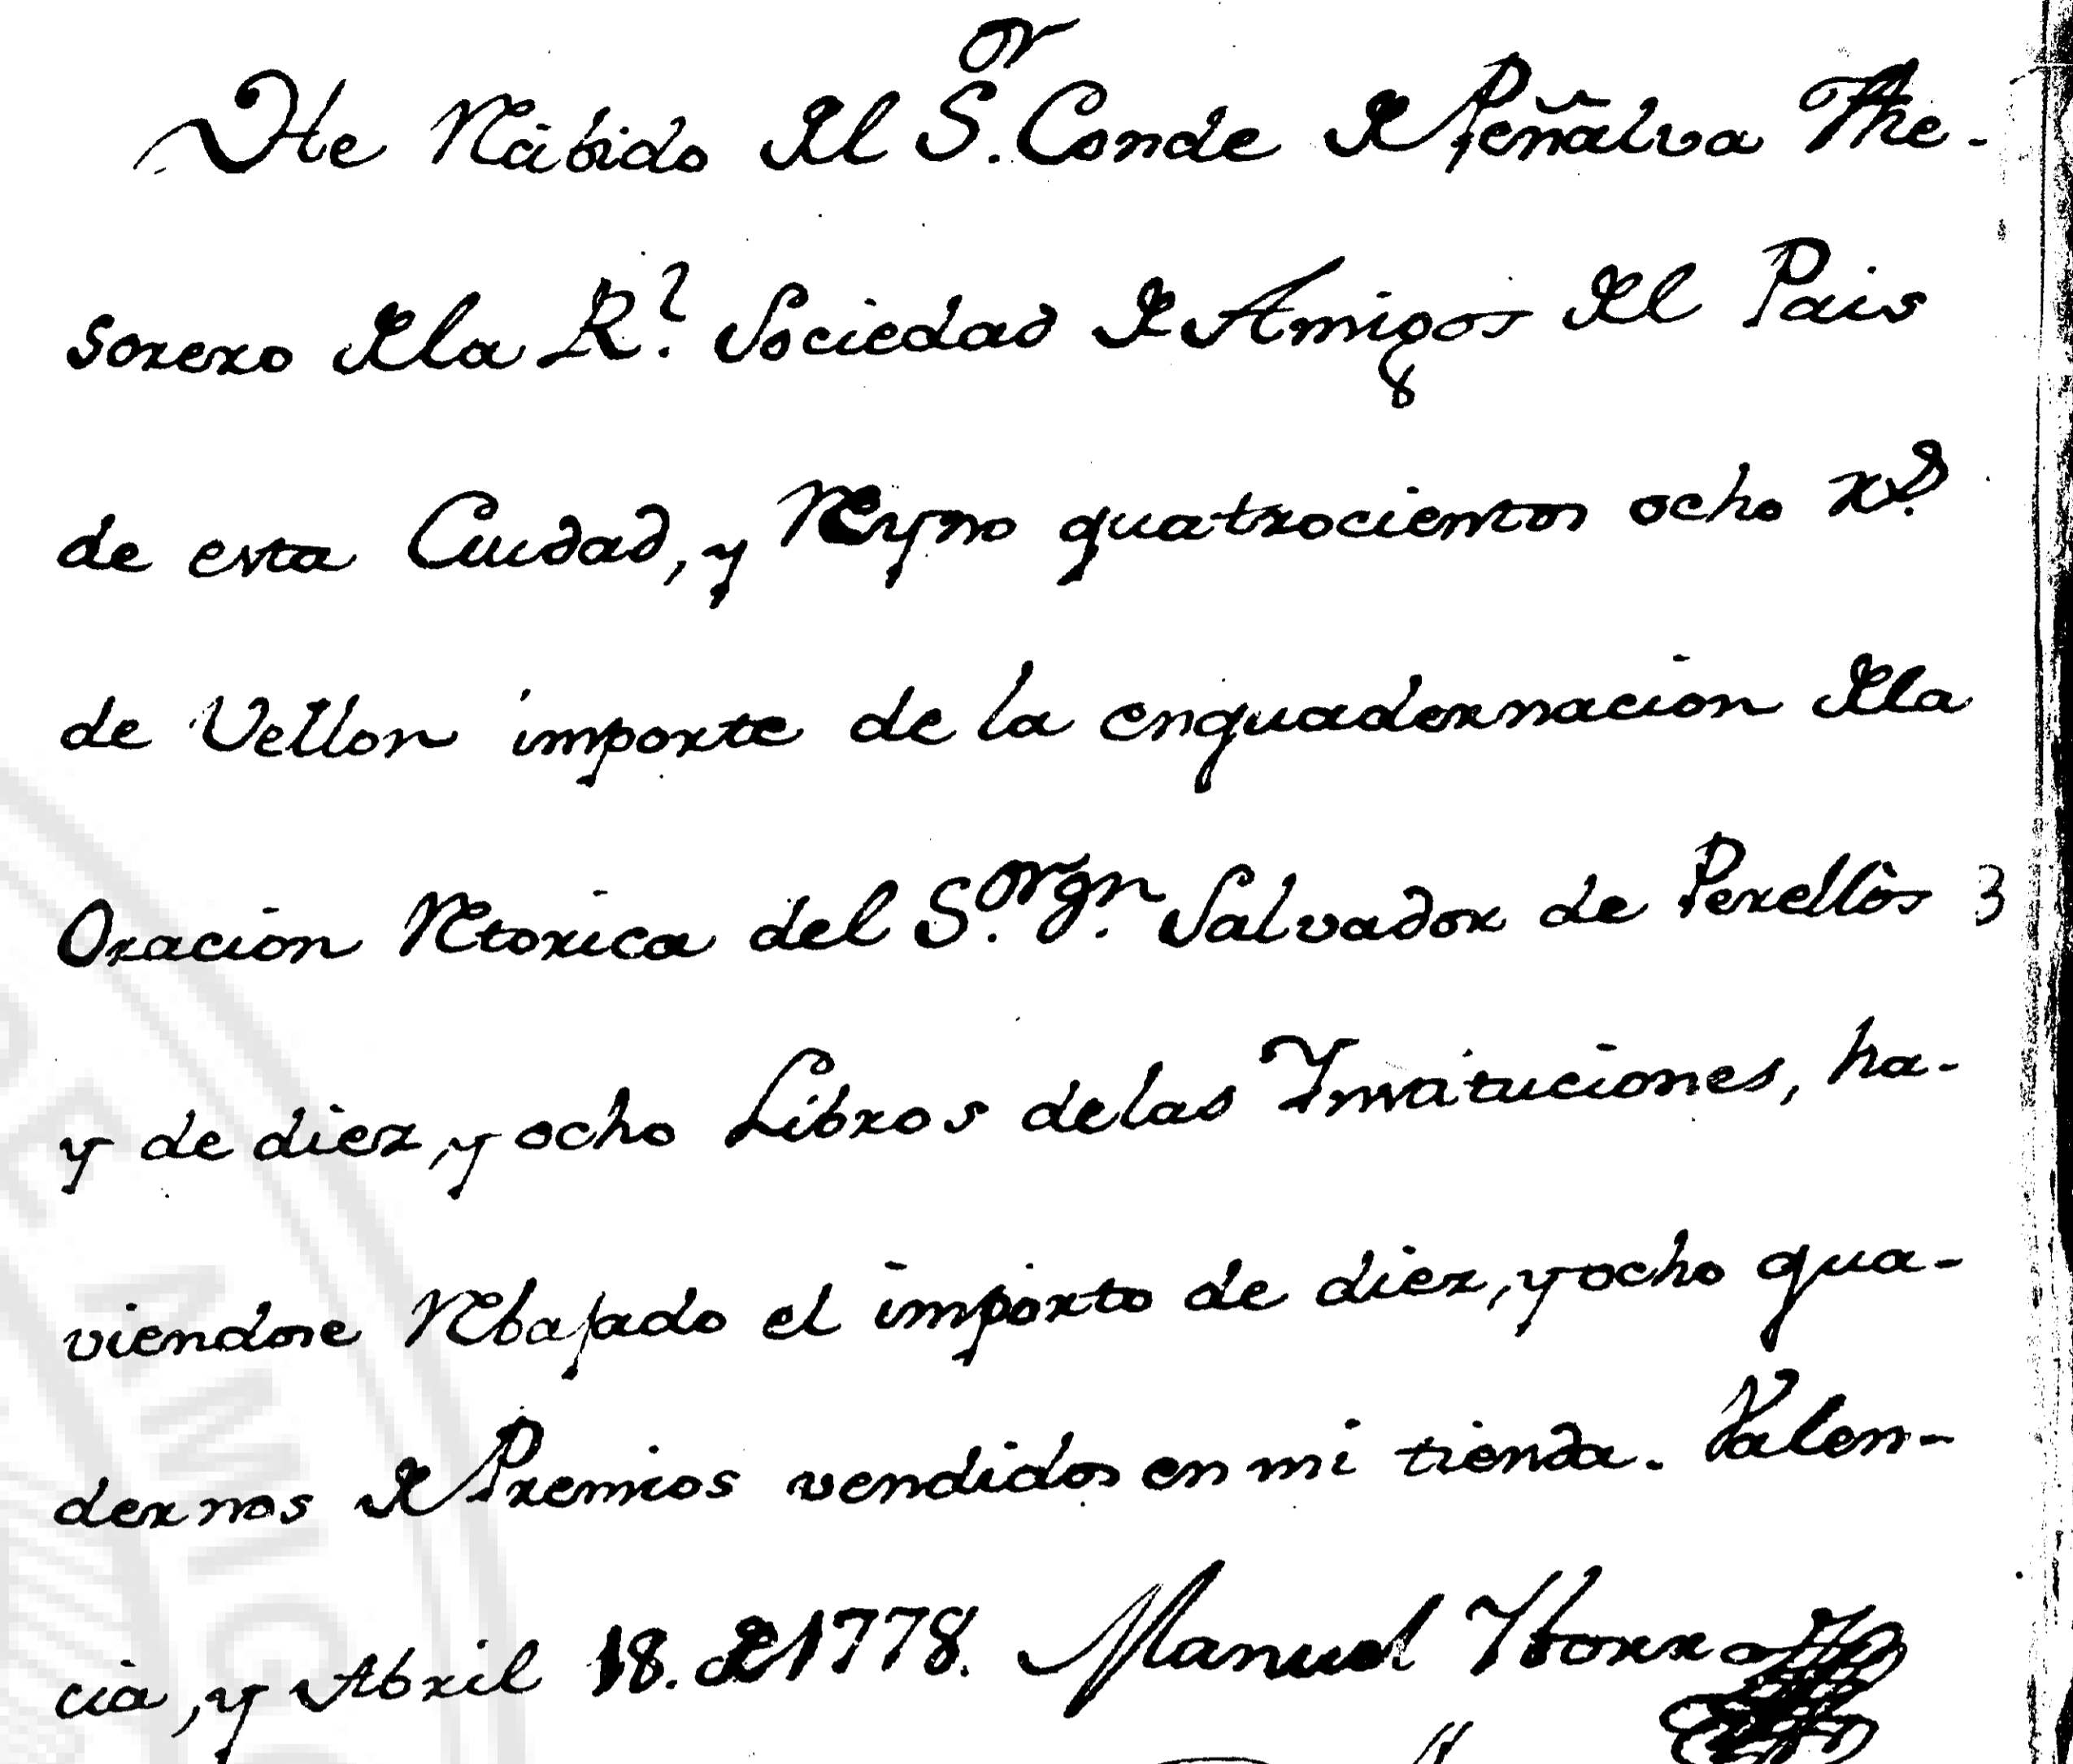 He Recibido del S.or Conde de Peñalva The-
sorero dela R.l Sociedad de Amigos del Pais
de esta Ciudad, y Reyno quatrocientos ocho r.s
de Vellon importe de la enquadernacion dela
Oracion Retorica del S.or D.n Salvador de Perellós
y de diez, y ocho Libros delas Instituciones, ha-
viendose Rebajado el importo de diez, y ocho qua-
dernos de Premios vendidos en mi tienda. Valen-
cia, y Abril 18. de 1778. Manuel Yborra